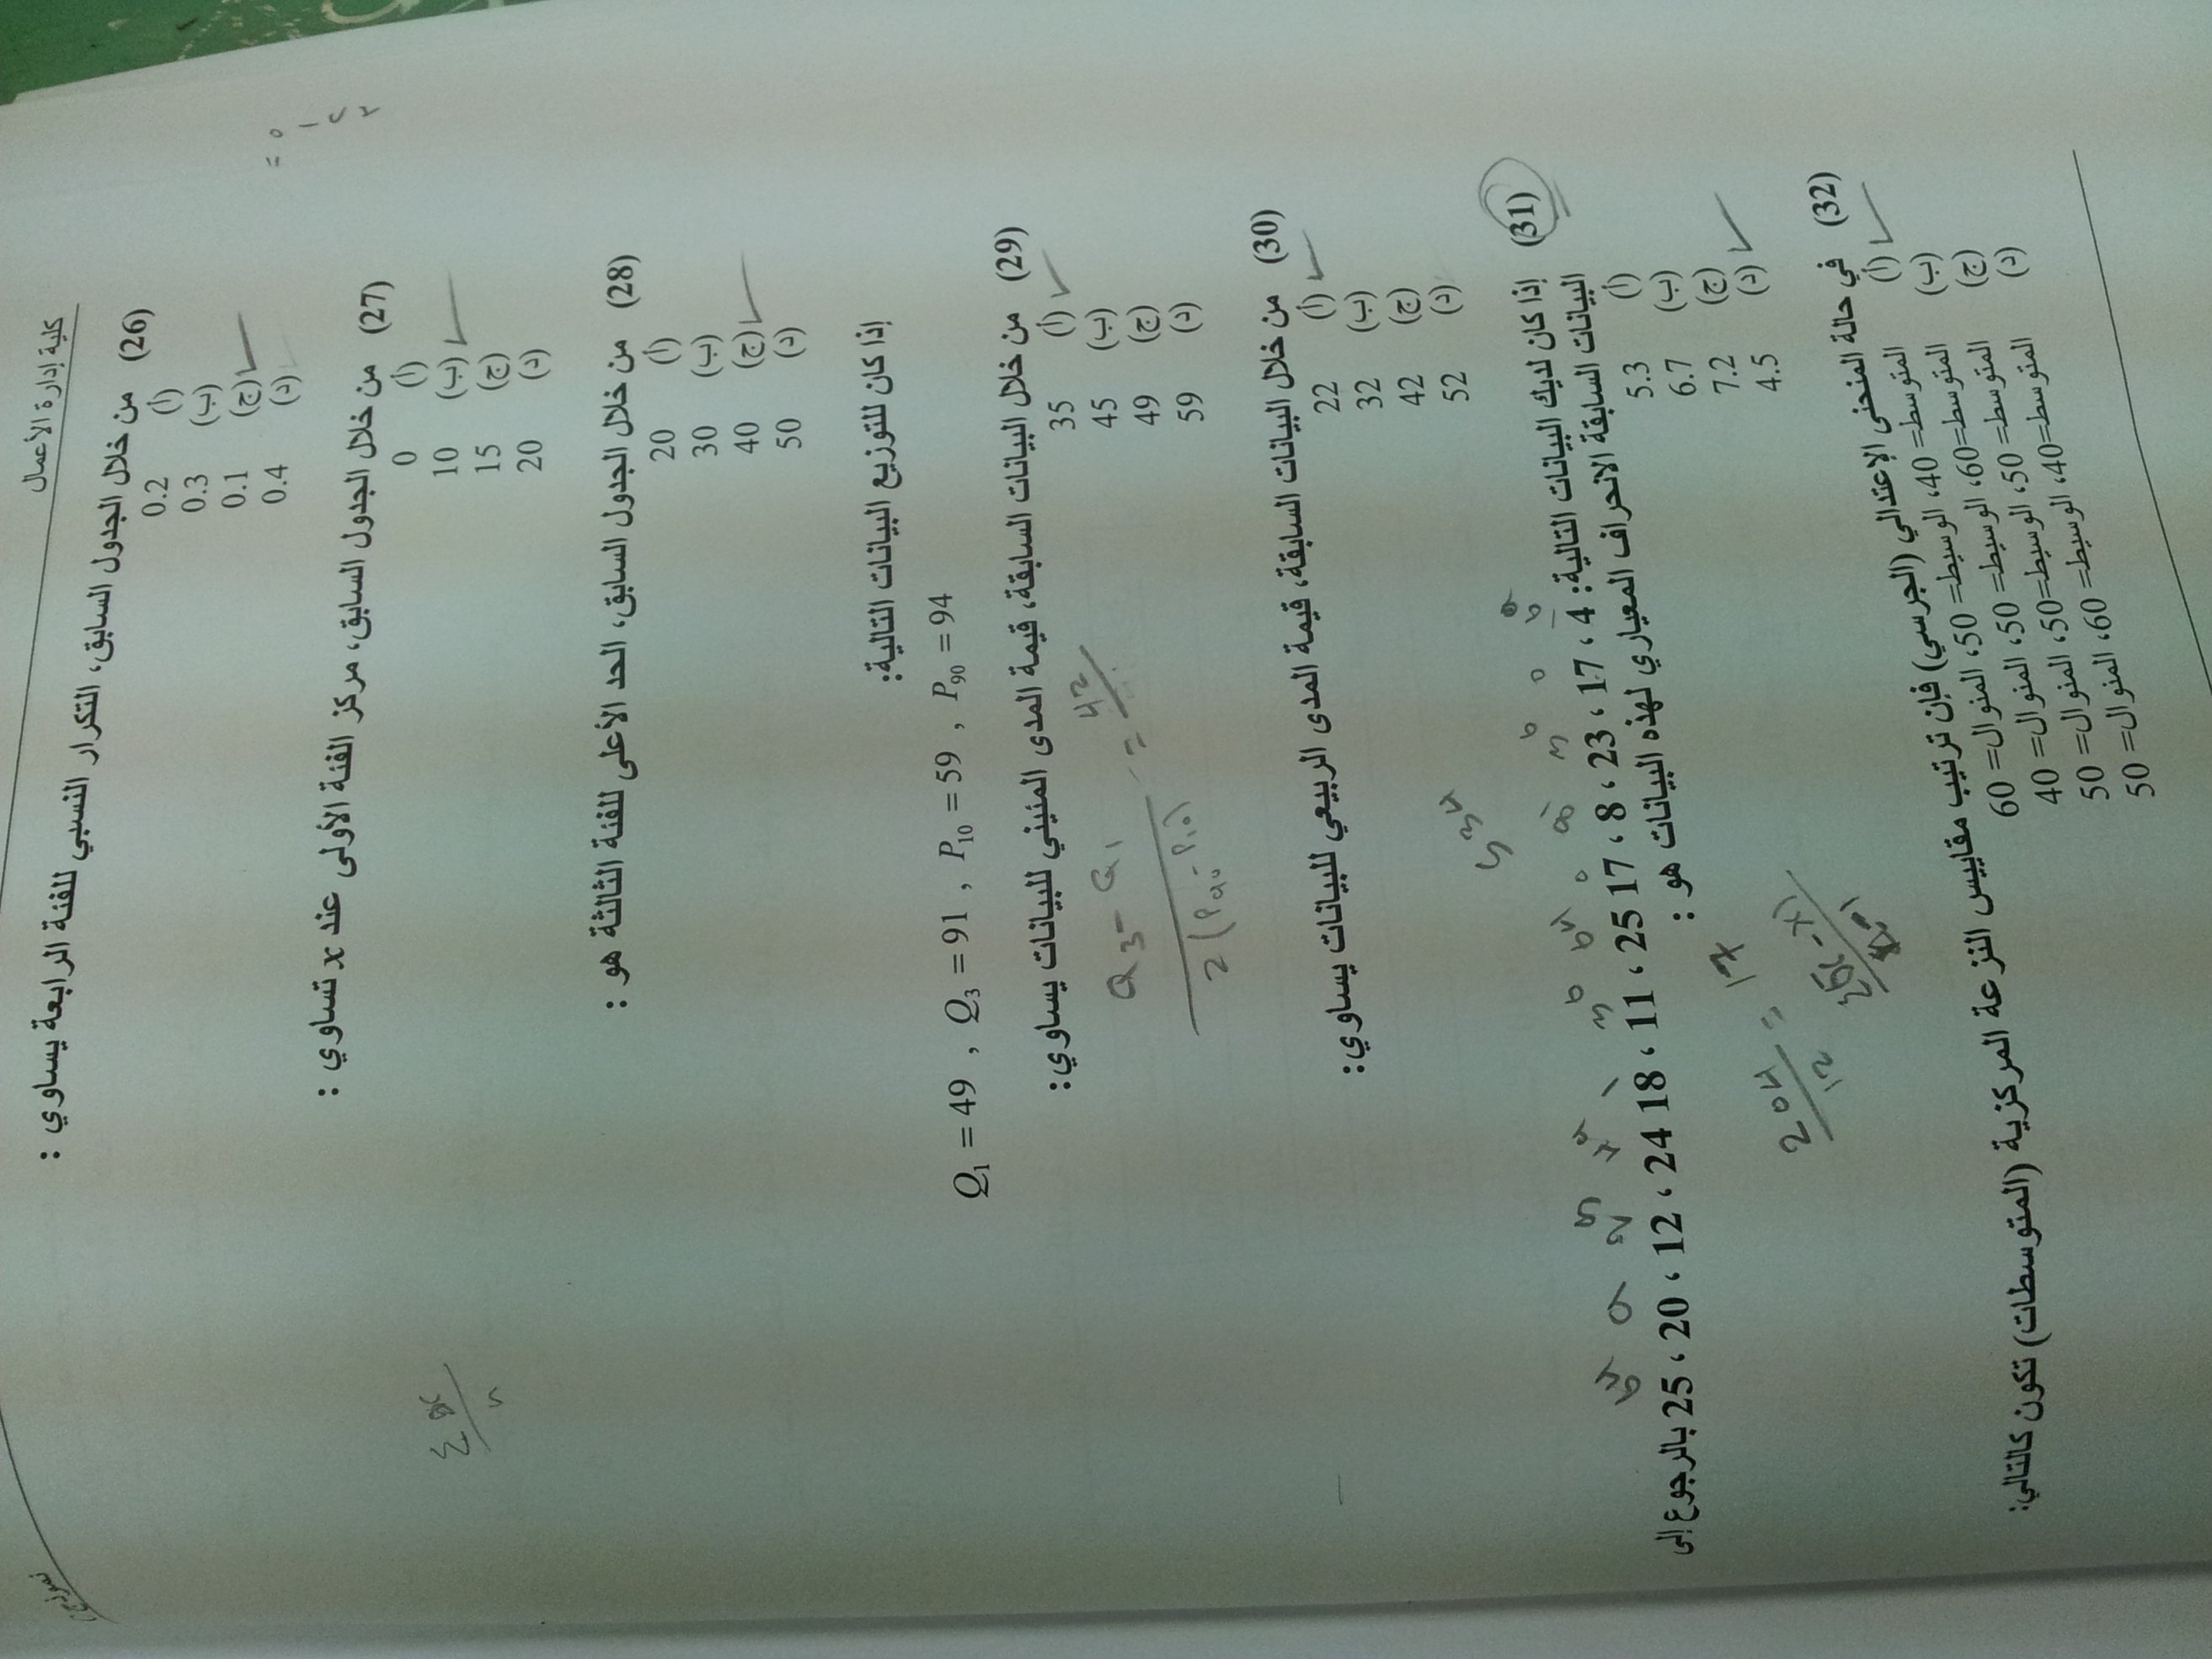 كلية إدارة الأعمال
نموذج
(26) من خلال الجدول السابق، التكرار النسبي للفئة الرابعة يساوي :
(أ) 0.2
(ب) 0.3
(ج) 0.1
(د) 0.4
(27) من خلال الجدول السابق، مركز الفئة الأولى عند x تساوي :
(أ) 0
(ب) 10
(ج) 15
(د) 20
(28) من خلال الجدول السابق، الحد الأعلى للفئة الثالثة هو :
(أ) 20
(ب) 30
(ج) 40
(د) 50
إذا كان للتوزيع البيانات التالية:
Q1 = 49 , Q3 = 91 , P10 = 59 , P90 = 94
(29) من خلال البيانات السابقة، قيمة المدى المئيني للبيانات يساوي:
(أ) 35
(ب) 45
(ج) 49
(د) 59
Q3 - Q1
2(P90 - P10)
= 42
(30) من خلال البيانات السابقة، قيمة المدى الربيعي للبيانات يساوي:
(أ) 22
(ب) 32
(ج) 42
(د) 52
(31) إذا كان لديك البيانات التالية: 4 ، 17 ، 23 ، 8 ، 17 25 ، 11 ، 18 24 ، 12 ، 20 ، 25 بالرجوع إلى
البيانات السابقة الانحراف المعياري لهذه البيانات هو :
(أ) 5.3
(ب) 6.7
(ج) 7.2
(د) 4.5
204
12
= 17
(32) في حالة المنحنى الإعتدالي (الجرسي) فإن ترتيب مقاييس النزعة المركزية (المتوسطات) تكون كالتالي:
(أ) المتوسط= 40، الوسيط= 50، المنوال= 60
(ب) المتوسط=60، الوسيط= 50، المنوال= 40
(ج) المتوسط= 50، الوسيط=50، المنوال= 50
(د) المتوسط=40، الوسيط= 60، المنوال= 50